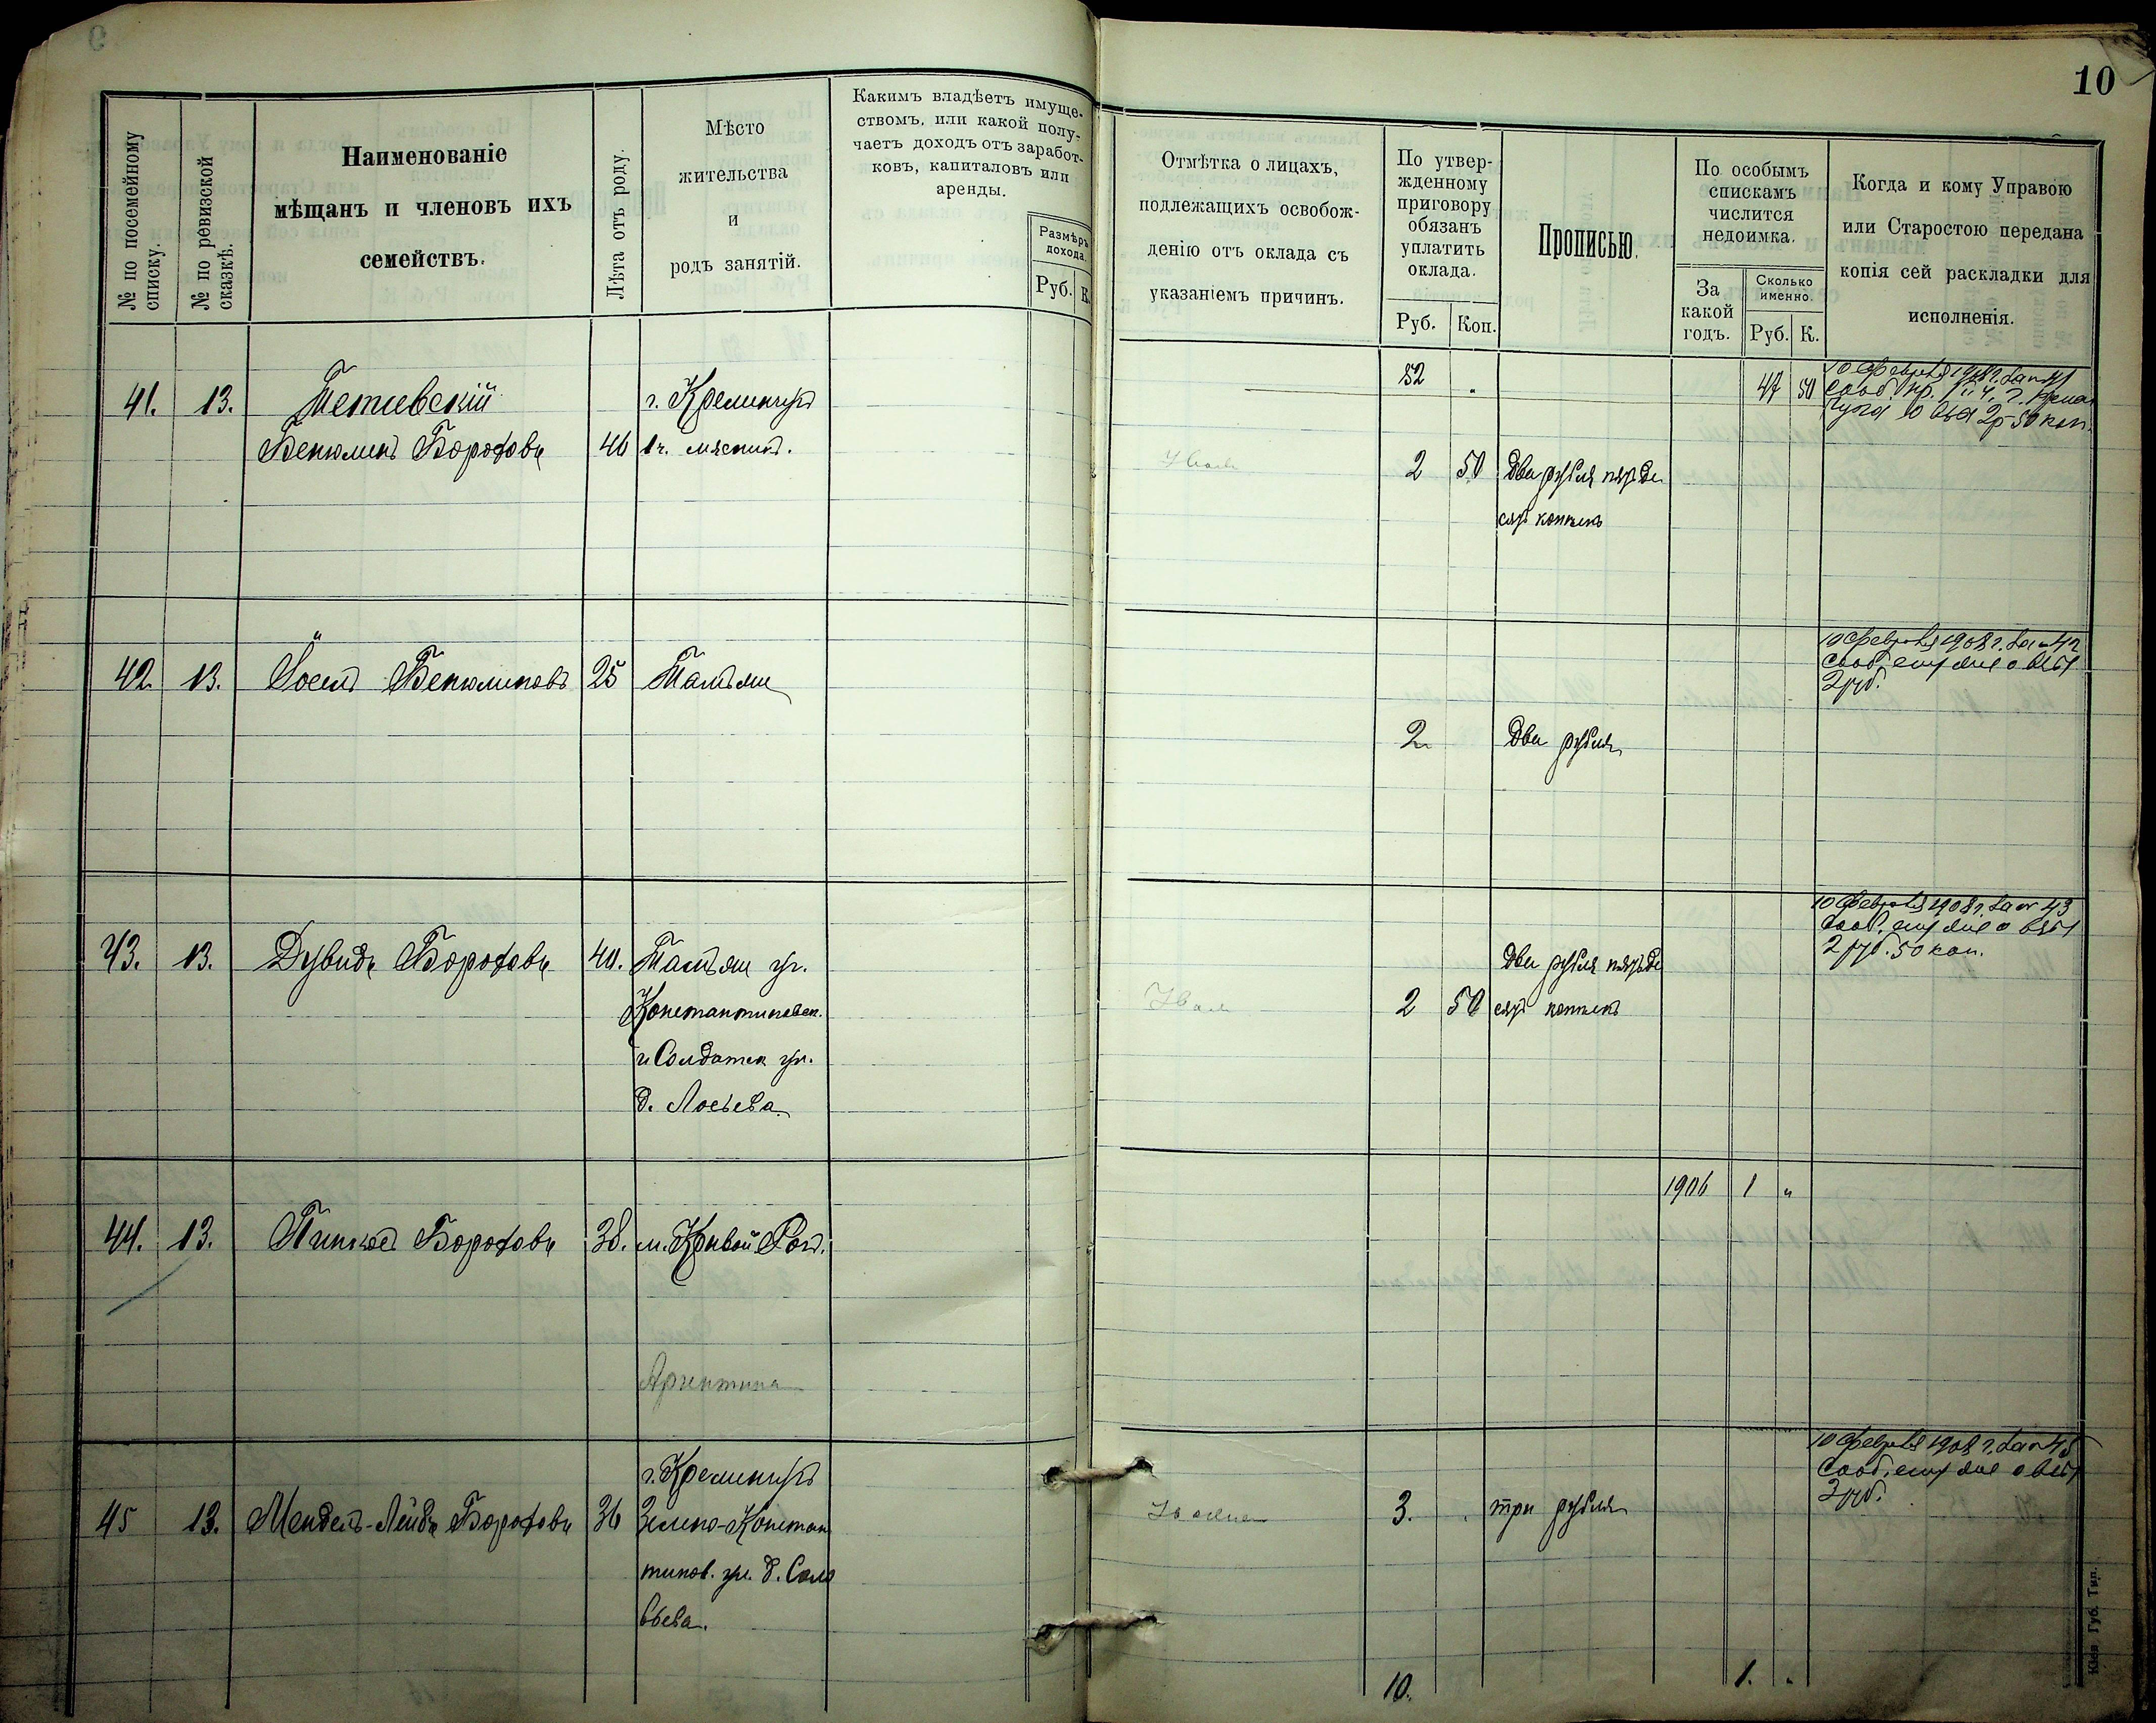 10
№ по посемейному списку.
№ по ревизской сказкѣ.
Наименованіе
мѣщанъ и членовъ ихъ
семействъ.
Лѣта отъ роду.
Мѣсто
жительства
и
родъ занятій.
Какимъ владѣетъ имуще-
ствомъ, или какой полу-
чаетъ доходъ отъ заработ-
ковъ, капиталовъ или
аренды.
Размѣръ
дохода.
Руб. К.
Отмѣтка о лицахъ,
подлежащихъ освобож-
денію отъ оклада съ
указаніемъ причинъ.
По утвер-
жденному
приговору
обязанъ
уплатить
оклада.
Руб. Коп.
Прописью.
По особымъ
спискамъ
числится
недоимка.
За
какой
годъ.
Сколько
именно.
Руб. К.
Когда и кому Управою
или Старостою передана
копія сей раскладки для
исполненія.
41. 13. Тетіевскій г. Кременчугъ
Бенюминъ Бороховъ 46
52 47 50
2 50 Два рубля пятьде
сятъ копѣекъ
10 Февраля 1908 г. за № 41
2р 50 коп.
42. 13. Іосель Бенюминовъ 25 Тамъ же
2 Два рубля
10 Февраля 1908 г. за № 42
сооб. ему же о взы
2 руб.
43. 13. Дувидъ Бороховъ 40. Тамъ же уг.
Константиновск.
и Солдатск ул.
д. Лосьева
2 50 Два рубля пятьде
сятъ копѣекъ
10 Февраля 1908 г. за № 43
сооб. ему же о взы
2 руб. 50 коп.
44. 13. Пинхосъ Бороховъ 38. м. Кривой Рогъ.
Аргентина
1906 1 "
45 13. Мендель-Лейбъ Бороховъ 36
г. Кременчугъ
Зелено-Констан
тинов. ул. д. Соло
вьева.
3. три рубля
10 Февраля 1908 г. за № 45
сооб. ему же о взы
3 руб.
10. 1.
Кіев. Губ. Тип.